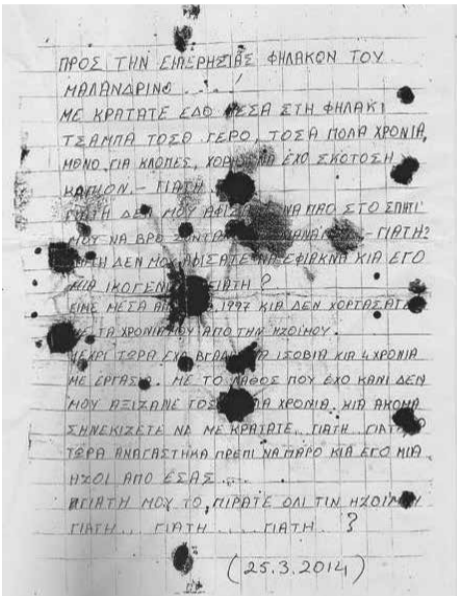 ΠΡΟΣ ΤΗΝ ΕΠΕΡΗΣΙΑΣ ΦΗΛΑΚΟΝ ΤΟΥ
ΜΑΛΑΝΔΡΙΝΟ
ΜΕ ΚΡΑΤΑΤΕ ΕΔΟ ΜΕΣΑ ΣΤΗ ΦΗΛΑΚΙ
ΤΣΑΜΠΑ ΤΟΣΟ ΓΕΡΟ, ΤΟΣΑ ΠΟΛΑ ΧΡΟΝΙΑ,
ΜΟΝΟ ΓΙΑ ΚΛΟΠΕΣ, ΧΟΡΗΣ ΝΑ ΕΧΟ ΣΚΟΤΟΣΗ
ΚΑΠΙΟΝ.- ΓΙΑΤΗ
ΓΙΑΤΗ ΔΕΝ ΜΟΥ ΑΦΙΣΑΤΕ ΝΑ ΠΑΟ ΣΤΟ ΣΠΗΤΙ
ΜΟΥ ΝΑ ΒΡΟ ΖΟΝΤΑ -ΓΙΑΤΗ?
ΓΙΑΤΗ ΔΕΝ ΜΟΥ ΑΦΙΣΑΤΕ ΝΑ ΕΦΙΑΚΝΑ ΚΙΑ ΕΓΟ
ΜΙΑ ΙΚΟΓΕΝΙΑ ΓΙΑΤΗ?
ΕΙΜΕ ΜΕΣΑ 1997 ΚΙΑ ΔΕΝ ΧΟΡΤΑΣΑΤΕ
ΜΕ ΤΑ ΧΡΟΝΙΑ ΜΟΥ ΑΠΟ ΤΗΝ ΗΖΟΙΜΟΥ.
ΜΕΧΡΙ ΤΩΡΑ ΕΧΩ ΒΓΑΛΗ ΙΣΟΒΙΑ ΚΙΑ 4 ΧΡΟΝΙΑ
ΜΕ ΕΡΓΑΣΙΑ. ΜΕ ΤΟ ΛΑΘΟΣ ΠΟΥ ΕΧΟ ΚΑΝΙ ΔΕΝ
ΜΟΥ ΑΞΙΖΑΝΕ ΤΟΣΑ ΧΡΟΝΙΑ ΚΙΑ ΑΚΟΜΑ
ΣΗΝΕΚΙΖΕΤΕ ΝΑ ΜΕ ΚΡΑΤΑΤΕ. ΓΙΑΤΗ ΓΙΑΤΗ?
ΤΩΡΑ ΑΝΑΓΑΣΤΗΚΑ ΠΡΕΠΙ ΝΑ ΠΑΡΟ ΚΙΑ ΕΓΟ ΜΙΑ
ΗΖΟΙ ΑΠΟ ΕΣΑΣ....
ΓΙΑΤΗ ΜΟΥ ΤΟ ΠΙΡΑΤΕ ΟΛΙ ΤΙΝ ΗΖΟΙΜΟΥ
ΓΙΑΤΗ... ΓΙΑΤΗ.... ΓΙΑΤΗ ?
(25.3.2014)